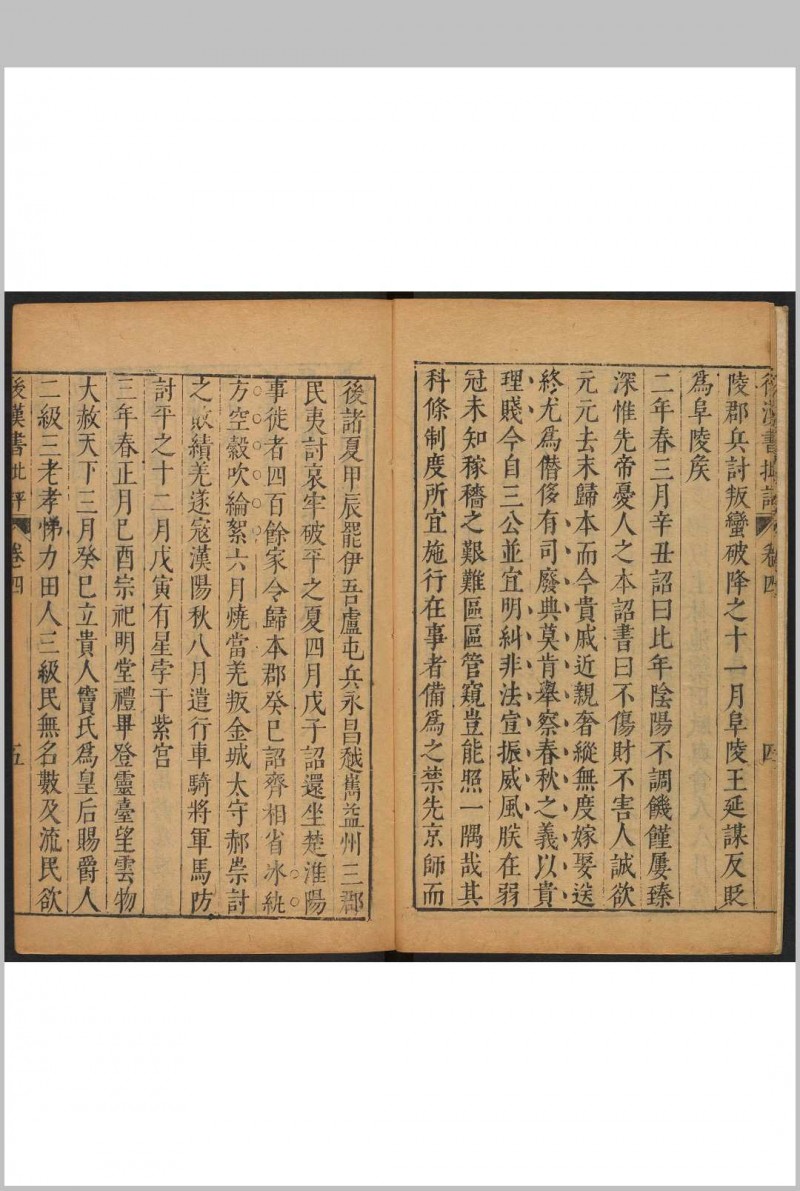 後漢書批評 卷四 四
陵郡兵討叛蠻破降之十一月阜陵王延謀反貶
爲阜陵矦
二年春三月辛丑詔曰比年陰陽不調饑饉屢臻
深惟先帝憂人之本詔書曰不傷財不害人誠欲
元元去末歸本而今貴戚近親奢縱無度嫁娶送
終尤爲僭侈有司廢典莫肯舉察春秋之義以貴
理賤今自三公並宜明糾非法宣振威風朕在弱
冠未知稼穡之艱難區區管窺豈能照一隅哉其
科條制度所宜施行在事者備爲之禁先京師而
後諸夏甲辰罷伊吾盧屯兵永昌越嶲益州三郡
民夷討哀牢破平之夏四月戊子詔還坐楚淮陽
事徙者四百餘家令歸本郡癸巳詔齊相省冰紈
方空縠吹綸絮六月燒當羌叛金城太守郝崇討
之敗績羌遂寇漢陽秋八月遣行車騎將軍馬防
討平之十二月戊寅有星孛于紫宮
三年春正月巳酉宗祀明堂禮畢登靈臺望雲物
大赦天下三月癸巳立貴人竇氏爲皇后賜爵人
二級三老孝悌力田人三級民無名數及流民欲
後漢書批評 卷四 五